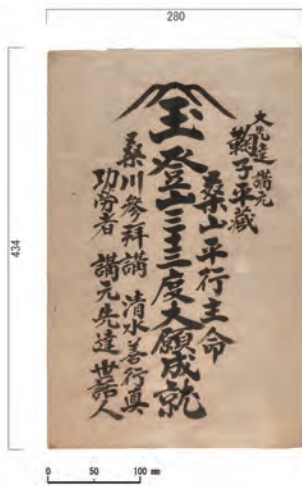 280
434
大先達 講元
鞠子平蔵
桑山平行主命
玉 登山三十三度大願成就
桑川參拜講 清水善行真
功勞者 講元先達 世話人
0 50 100 mm